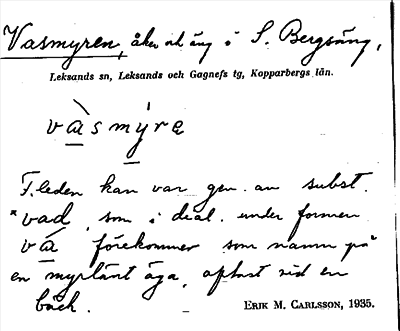 Vasmyren, åker och äng i S. Bergsäng,
Leksands sn, Leksands och Gagnefs tg, Kopparbergs län.
và̱smý̱ra
F.leden kan var gen. av subst.
*vad, som i dial. under formen
vá̱ förekommer som namn på
en myrlänt äga, oftast vid en
bäck.
ERIK M. CARLSSON, 1935.